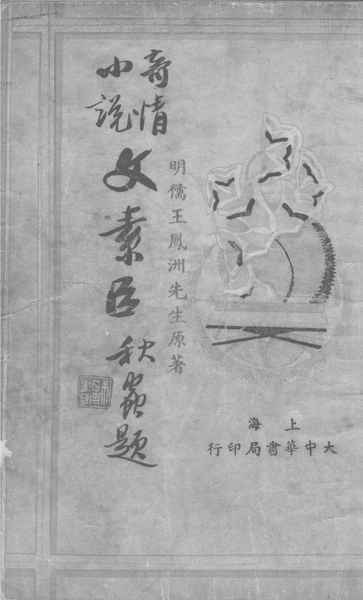 奇情
小説
文素臣
秋蟲題
明儒王鳳洲先生原著
上海
大中華書局印行